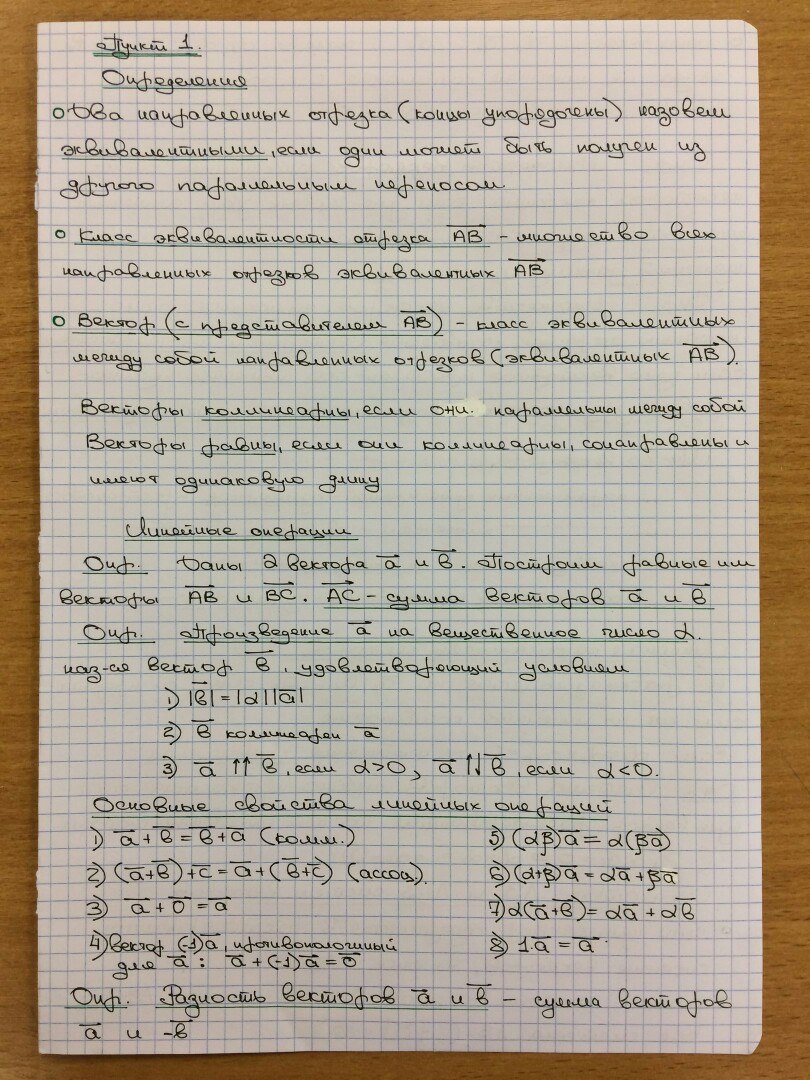 Пункт 1.
Определения
Два направленных отрезка (концы упорядочены) назовем
эквивалентными, если один может быть получен из
другого параллельным переносом.
Класс эквивалентности отрезка AB⃗ - множество всех
направленных отрезков эквивалентных AB⃗
Вектор (с представителем AB⃗) - класс эквивалентных
между собой направленных отрезков (эквивалентных AB⃗).
Векторы коллинеарны, если они параллельны между собой
Векторы равны, если они коллинеарны, сонаправлены и
имеют одинаковую длину
Линейные операции
Опр. Даны 2 вектора a̅ и b̅. Построим равные им
векторы AB⃗ и BC⃗. AC⃗ - сумма векторов a̅ и b̅
Опр. Произведение a̅ на вещественное число α.
наз-ся вектор b̅, удовлетворяющий условием
1) |b̅| = |α||a̅|
2) b̅ коллинеарен a̅
3) a̅ ↑↑ b̅, если α>0, a̅ ↑↓ b̅, если α<0.
Основные свойства линейных операций
1) a̅ + b̅ = b̅ + a̅ (комм.) 5) (αβ)a̅ = α(βa̅)
2) (a̅+b̅)+c̅ = a̅+(b̅+c̅) (ассоц). 6) (α+β)a̅ = αa̅ + βa̅
3) a̅ + 0̅ = a̅ 7) α(a̅+b̅) = αa̅ + αb̅
4) вектор (-1)a̅, противоположный 8) 1·a̅ = a̅
для a̅ : a̅ + (-1)a̅ = 0̅
Опр. Разность векторов a̅ и b̅ - сумма векторов
a̅ и -b̅